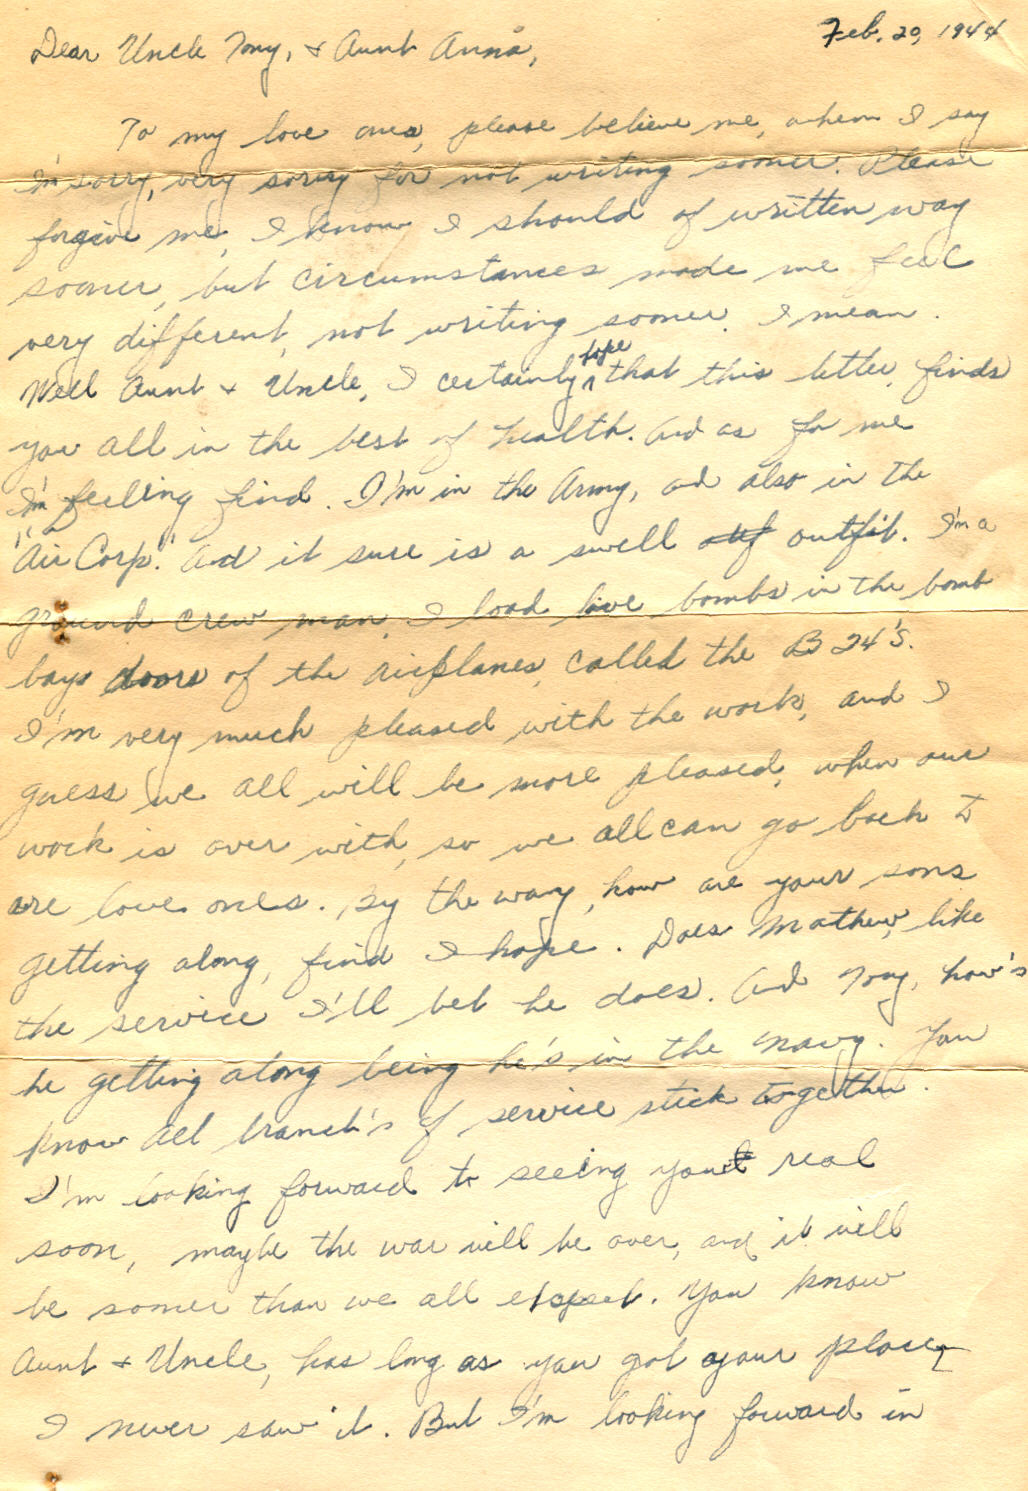 Feb. 20, 1944
Dear Uncle Tony, & Aunt Anna,
To my love ones, please believe me, when I say
I'm sorry, very sorry for not writing sooner. Please
forgive me, I know I should of written way
sooner, but circumstances made me feel
very different, not writing sooner I mean.
Well Aunt & Uncle, I certainly hope that this letter, finds
you all in the best of health. And as for me
I'm feeling find. I'm in the Army, and also in the
"Air Corp." And it sure is a swell outfit. I'm a
ground crew man, I load live bombs in the bomb
bays doors of the airplanes, called the B 24's.
I'm very much pleased with the work, and I
guess we all will be more pleased, when our
work is over with, so we all can go back to
are love ones. By the way, how are your sons
getting along, find I hope. Does Mathew, like
the service I'll bet he does. And Tony, how's
he getting along being he's in the navy. You
know all branch's of service stick together.
I'm looking forward to seeing you real
soon, maybe the war will be over, and it will
be sooner than we all expect. You know
Aunt & Uncle, has long as you got your place,
I never saw it. But I'm looking forward in